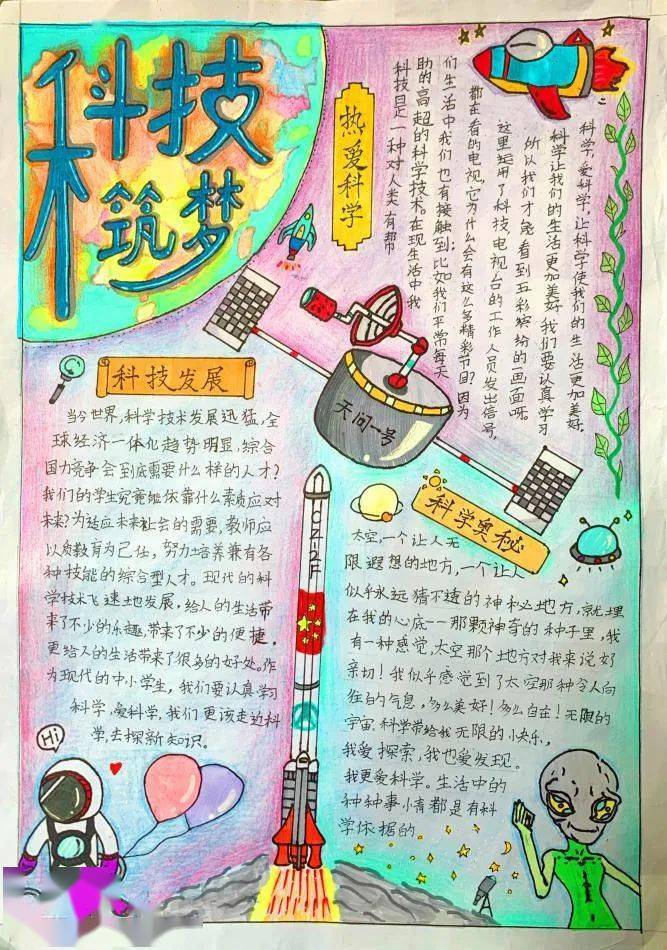 科技
筑梦
热爱科学
科技是一种对人类有帮
助的高超的科学技术。在现生活中我
们生活中我们也有接触到;比如我们平常每天
都在看的电视,它为什么会有这么多精彩节目?因为
这里运用了科技,电视台的工作人员发出信号,
所以我们才能看到五彩缤纷的画面呀。
科学让我们的生活更加美好,我们要认真学习
科学,爱科学,让科学使我们的生活更加美好.
天问一号
科技发展
当今世界,科学技术发展迅猛,全
球经济一体化趋势明显,综合
国力竞争会到底需要什么样的人才?
我们的学生究竟能依靠什么素质应对
未来?为适应未来社会的需要,教师应
以质教育为己任,努力培养兼有各
种技能的综合型人才。现代的科
学技术飞速土地发展,给人的生活带
来了不少的乐趣,带来了不少的便捷,
更给人的生活带来了很多的好处。作
为现代的中小学生,我们要认真学习
科学,爱科学,我们更该走近科
学,去探新知识。
科学奥秘
太空,一个让人无
限遐想的地方,一个让人
似乎永远猜不透的神秘地方,就埋
在我的心底——那颗神奇的种子里,我
有一种感觉,太空那个地方对我来说好
亲切!我似乎感觉到了太空那种令人向
往的气息,多么美好!多么自在!无限的
宇宙.科学带给我无限的小快乐,
我爱探索,我也爱发现。
我更爱科学。生活中的
种种事情都是有科
学依据的
Hi